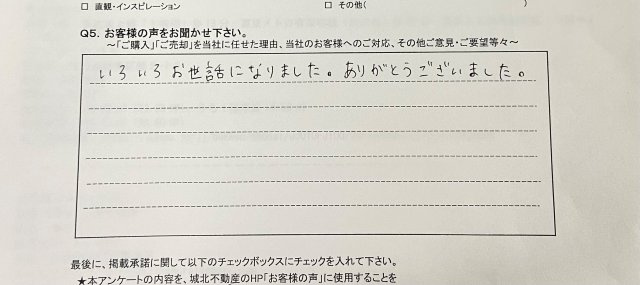 □ 直観・インスピレーション　□ その他(　)
Q5. お客様の声をお聞かせ下さい。
～「ご購入」「ご売却」を当社に任せた理由、当社のお客様へのご対応、その他ご意見・ご要望等々～
いろいろお世話になりました。ありがとうございました。
最後に、掲載承諾に関して以下のチェックボックスにチェックを入れて下さい。
★本アンケートの内容を、城北不動産のHP「お客様の声」に使用することを